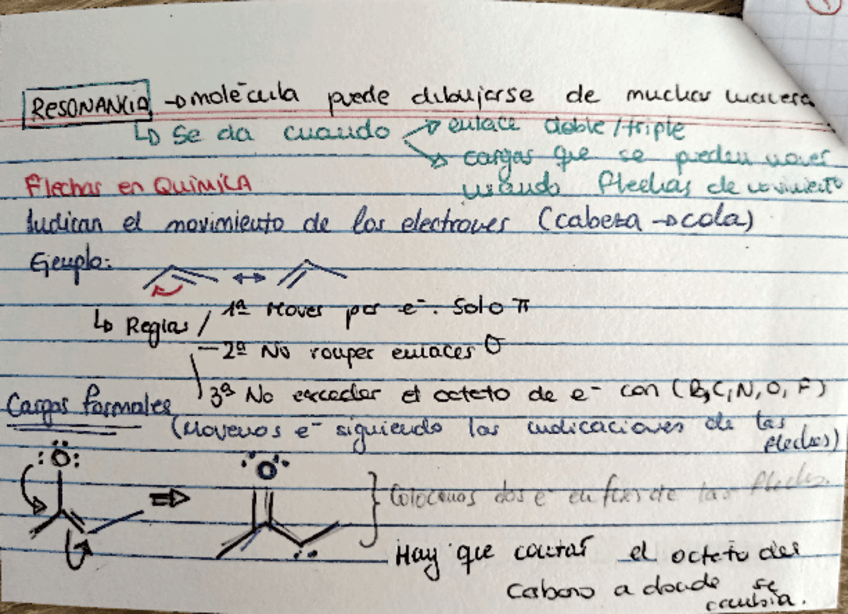 RESONANCIA → molécula puede dibujarse de muchas maneras
↳ Se da cuando → enlace doble/triple
→ cargas que se pueden mover
usando flechas de movimiento
Flechas en QUÍMICA
Indican el movimiento de los electrones (cabeza → cola)
Ejemplo:
↳ Reglas / 1ª Mover par e⁻. Solo π
2ª No romper enlaces σ
3ª No exceder el octeto de e⁻ con (B,C,N,O,F)
Cargas formales
(Movemos e⁻ siguiendo las indicaciones de las
flechas)
:Ö: ⇒ O
Colocamos dos e⁻ en fin de las flechas.
Hay que contar el octeto del
carbono a donde se
cambia.